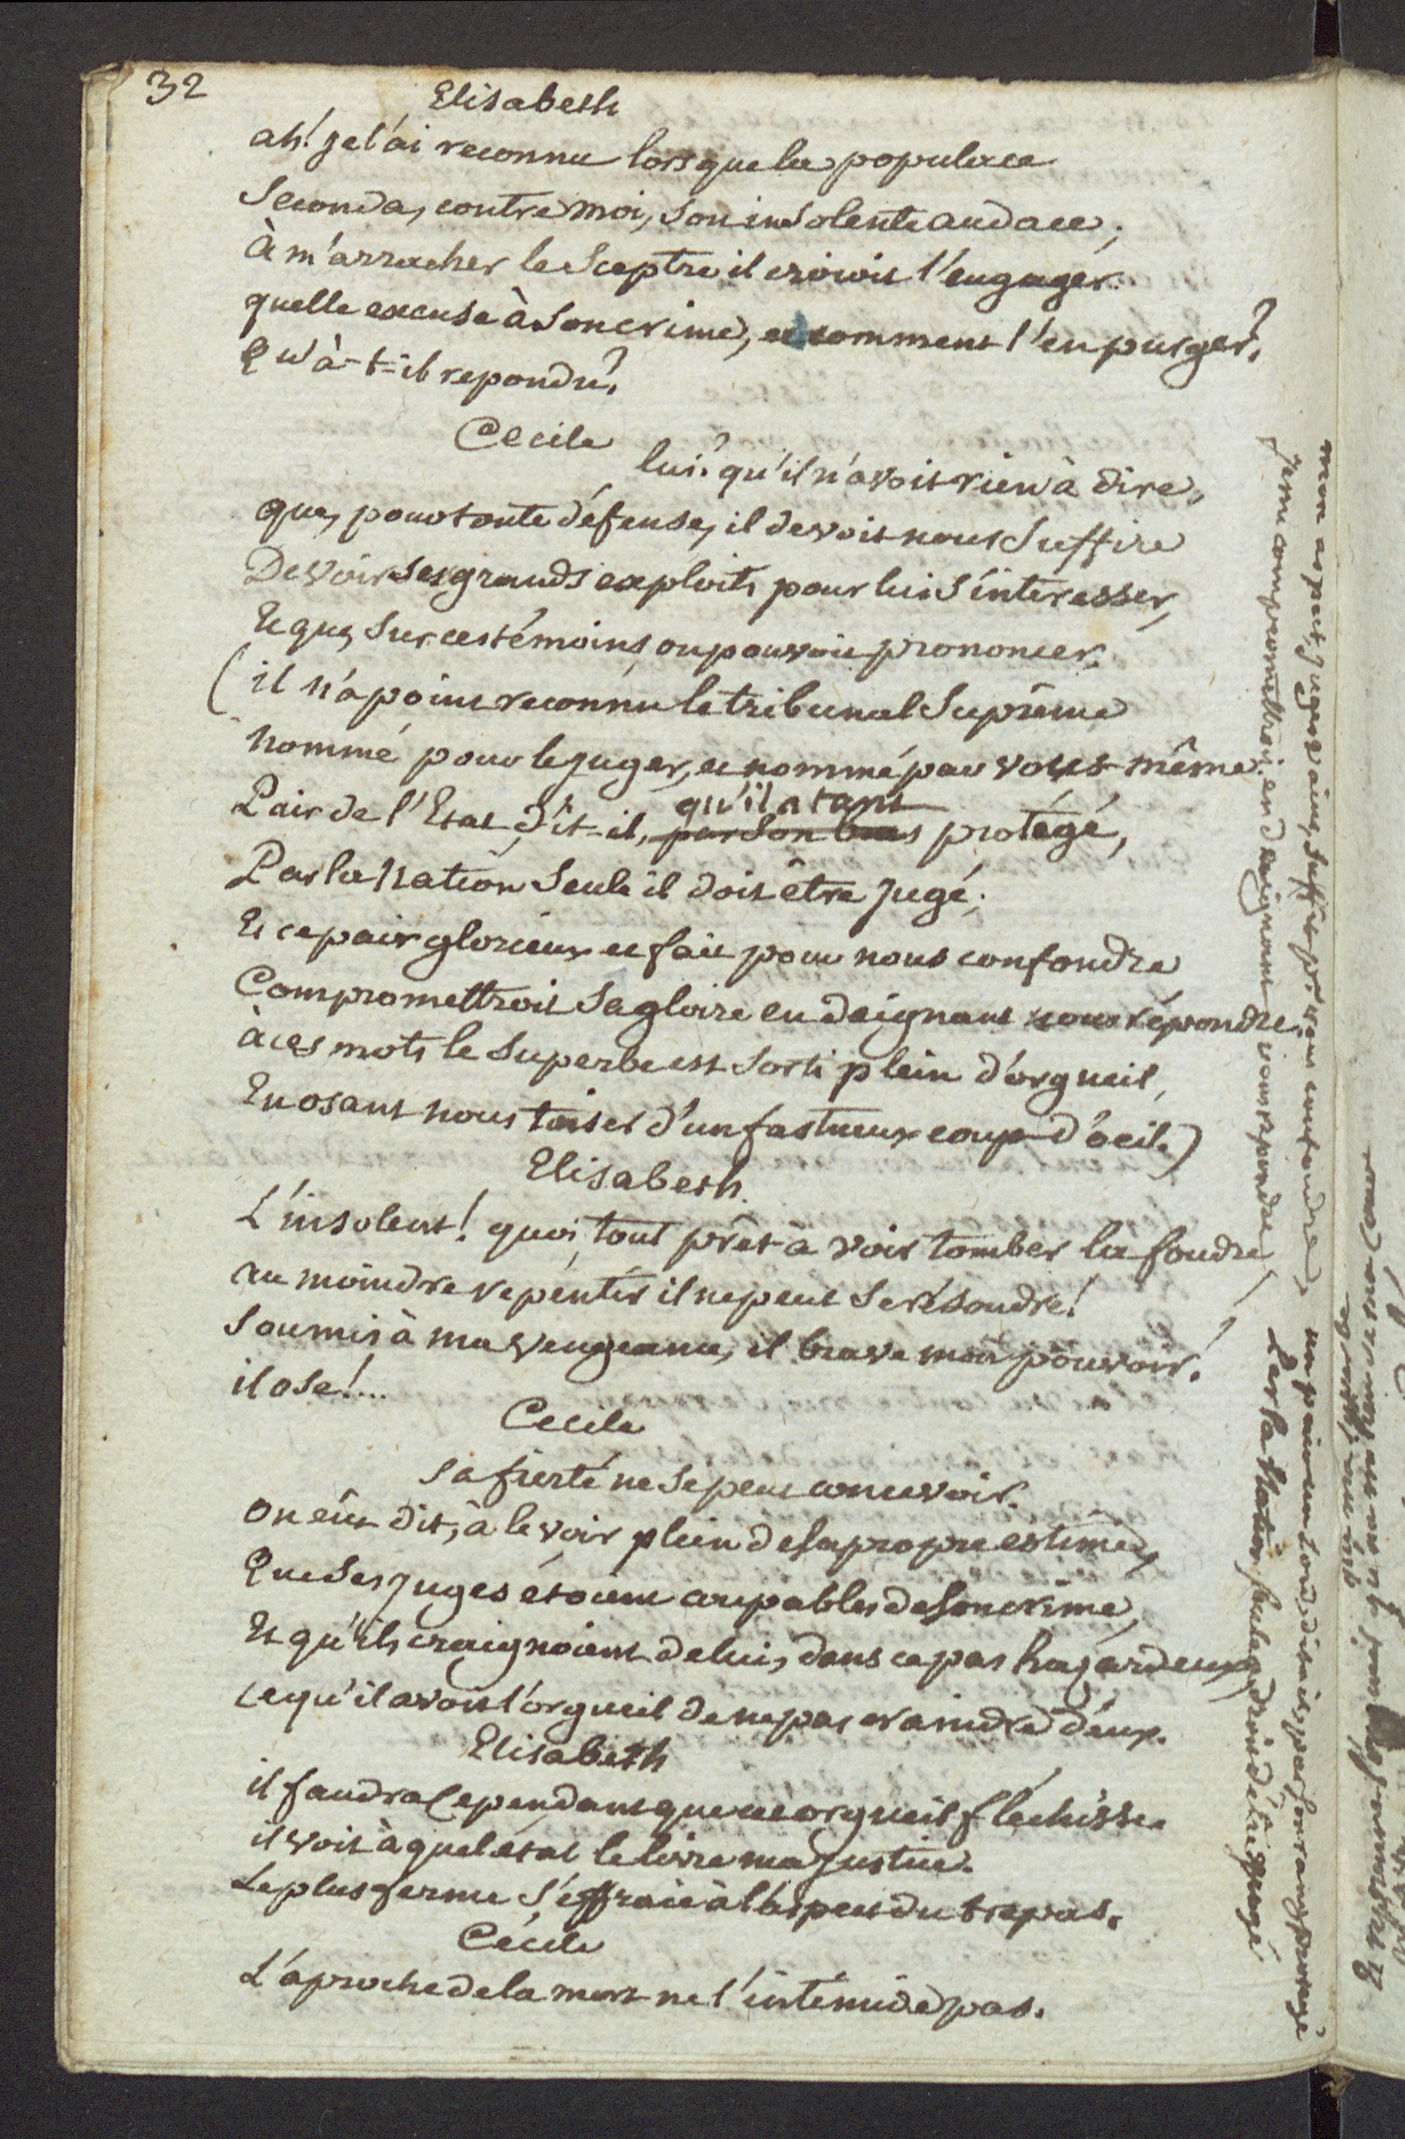 32
Elisabeth
ah! je l'ai reconnu lorsque la populace
Seconda, contre moi, son insolente audace;
à m'arracher le Sceptre il croioit l'engager.
quelle excuse à Son crime, et comment l'en purger?
Qu'à-t-il repondu?
Cecile
lui? qu'il n'avoit rien à dire,
que, pour toute défense, il devoit nous Suffire
De voir Ses grands exploits pour lui S'intéresser,
Et que, Sur ces témoins, on pouvoit prononcer.
(il n'a point reconnu le tribunal Suprême
nommé pour le juger, et nommé par vous-même.
qu'il a tant
Pair de l'Etat, dit-il, par Son bras protégé,
Par la Nation Seule il doit être jugé;
Et ce pair glorieux et fait pour nous confondre
Compromettroit Sa gloire en daignant nous répondre.
à ces mots le Superbe est Sorti plein d'orgueil,
En osant nous toiser d'un fastueux coup-d'œil.)
Elisabeth.
L'insolent! quoi, tout prêt à voir tomber la foudre,
au moindre repentir il ne peut Se résoudre!
Soumis à ma vengeance, il brave mon pouvoir!
il ose!...
Cecile
Sa fierté ne Se peut concevoir.
on eût dit, à le voir plein de Sa propre estime,
Que Ses juges étoient coupables de Son crime,
Et qu'ils craignoient de lui, dans ce pas hazardeux,
ce qu'il avoit l'orgueil de ne pas craindre d'eux.
Elisabeth
il faudra Cependant que cet orgueil fléchisse.
il voit à quel état le livre ma justice.
Le plus ferme S'effraie à l'aspect du trepas.
Cécile
L'aproche de la mort ne l'intimide pas.
un pair dit-il, par son rang protégé
Par la Nation seule a droit d'être jugé
mon aspect, juges vains, Suffit pr. vous confondre,
je me compromettrois en daignant vous répondre